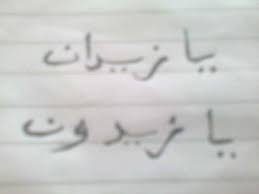 يا زيدان
يا زيدون